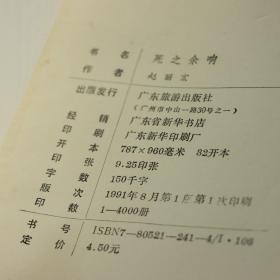 书 名 死之余响
作 者 赵丽宏
出版发行 广东旅游出版社
(广州市中山一路30号之一)
经 销 广东省新华书店
印 刷 广东新华印刷厂
开 本 787×960毫米 32开本
印 张 9.25印张
字 数 150千字
版 次 1991年8月第1版第1次印刷
印 数 1—4000册
书 号 ISBN7—80521—241—4/I·106
定 价 4.50元